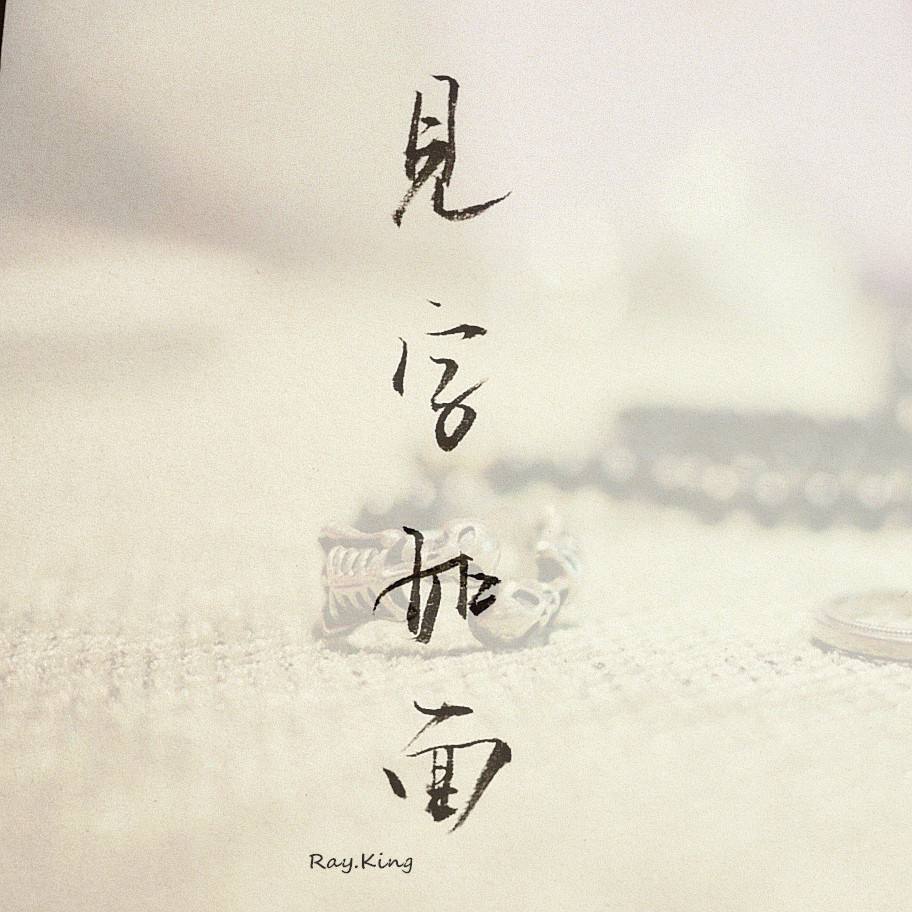 見字如面
Ray.King